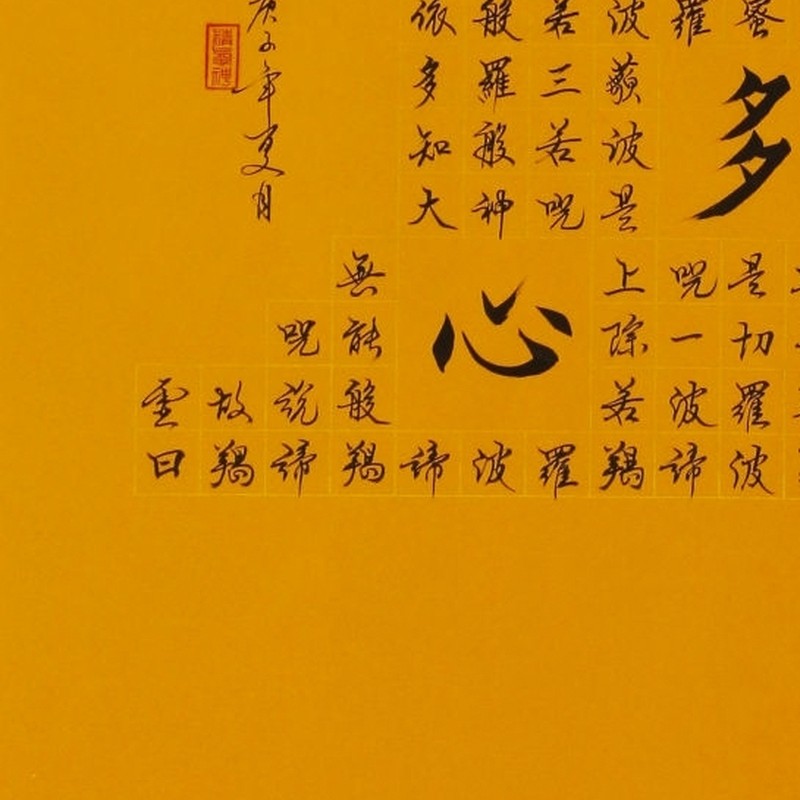 依般若波羅蜜
多羅三藐
多
知般若波
大神咒是
無上咒是
心
咒能除一切
虛故說般若波羅
曰羯諦羯諦波羅羯諦波
庚子年夏月